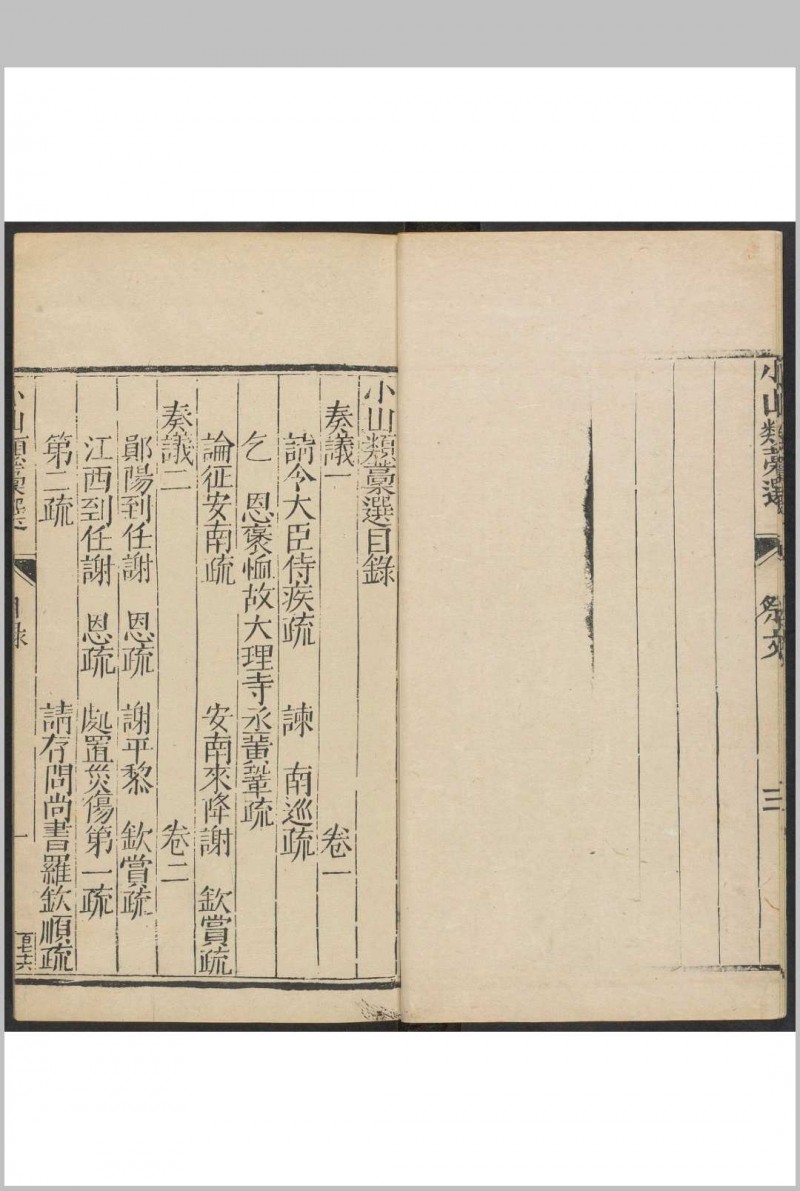 小山類藁選
祭文
三
小山類藁選目錄
奏議一 卷一
請今大臣侍疾疏 諫 南巡疏
乞 恩褒恤故大理寺丞黃鞏疏
論征安南疏 安南來降謝 欽賞疏
奏議二 卷二
鄖陽到任謝 恩疏 謝平黎 欽賞疏
江西到任謝 恩疏 處置災傷第一疏
第二疏 請存問尚書羅欽順疏
小山類藁選
目錄
一
百七六